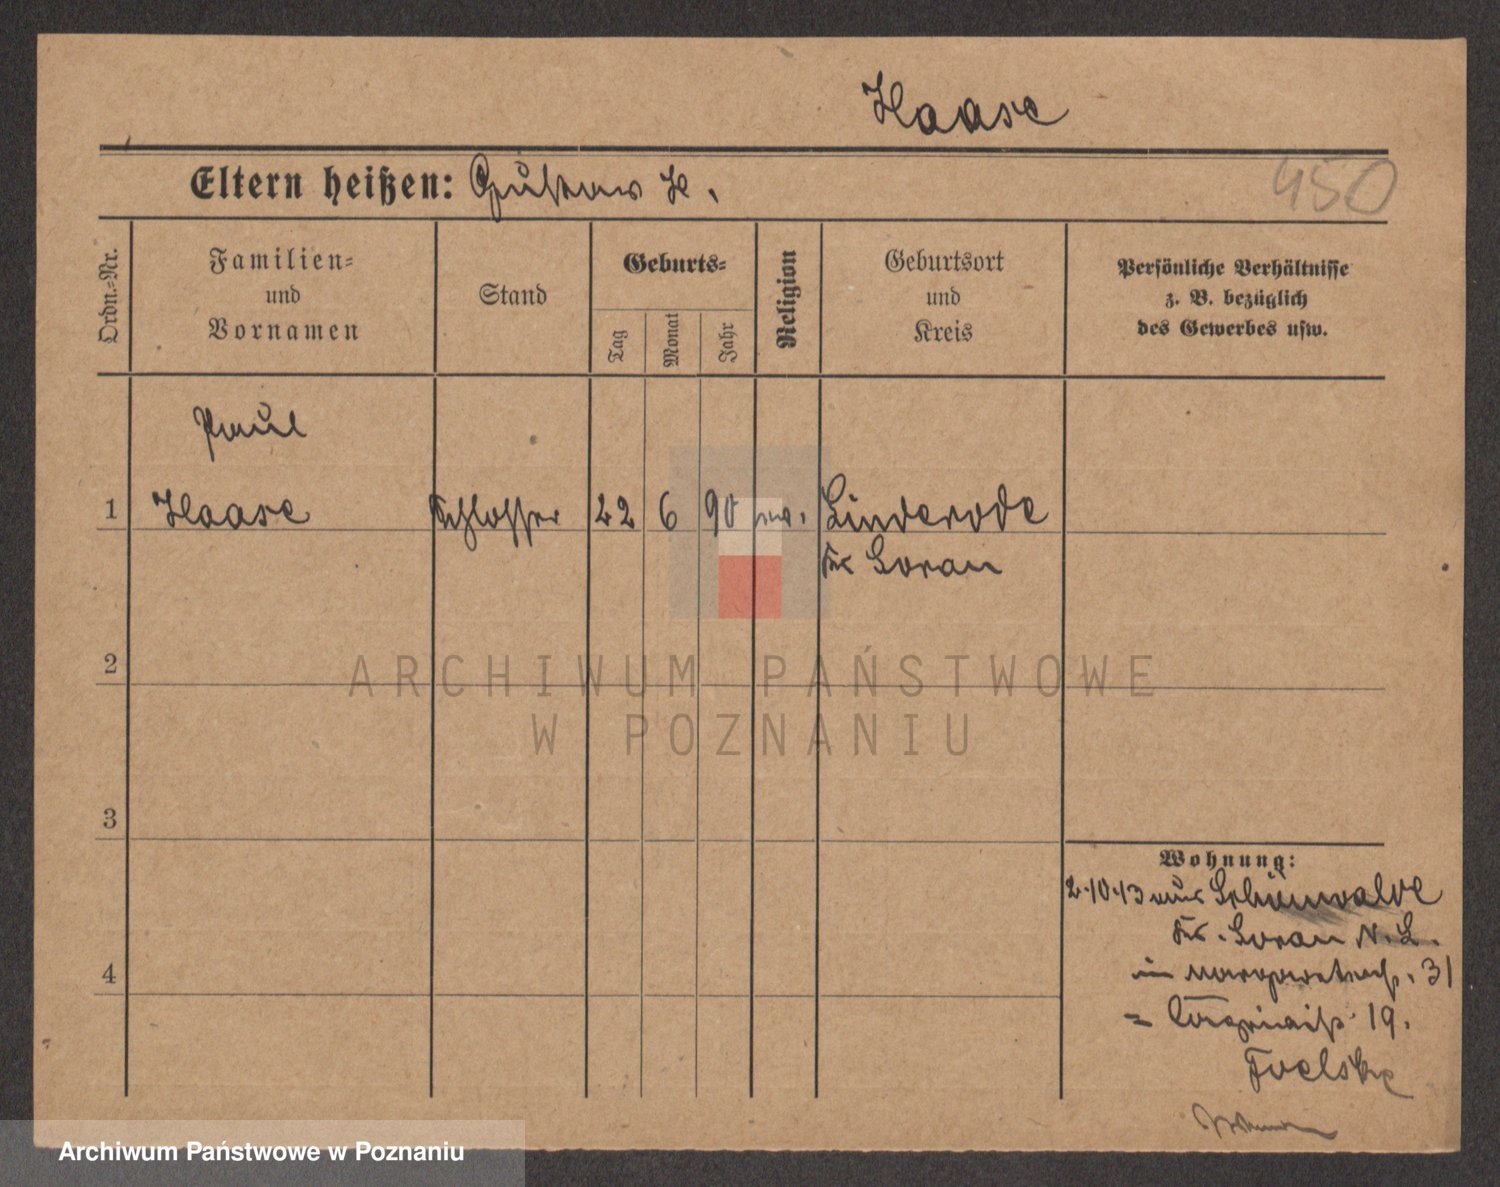 Haase
Eltern heißen: Gustav H.
450
Ordn.=Nr.
Familien=
und
Vornamen
Stand
Geburts=
Tag
Monat
Jahr
Religion
Geburtsort
und
Kreis
Persönliche Verhältnisse
z. B. bezüglich
des Gewerbes usw.
Paul
1 Haase Schlosser 22 6 90 ev. Linderode
Kr Soran
2
3
4
Wohnung:
2.10.13 aus Schönwalde
Kr. Soran N. L.
in 31
= 19.
ARCHIWUM PAŃSTWOWE
W POZNANIU
Archiwum Państwowe w Poznaniu